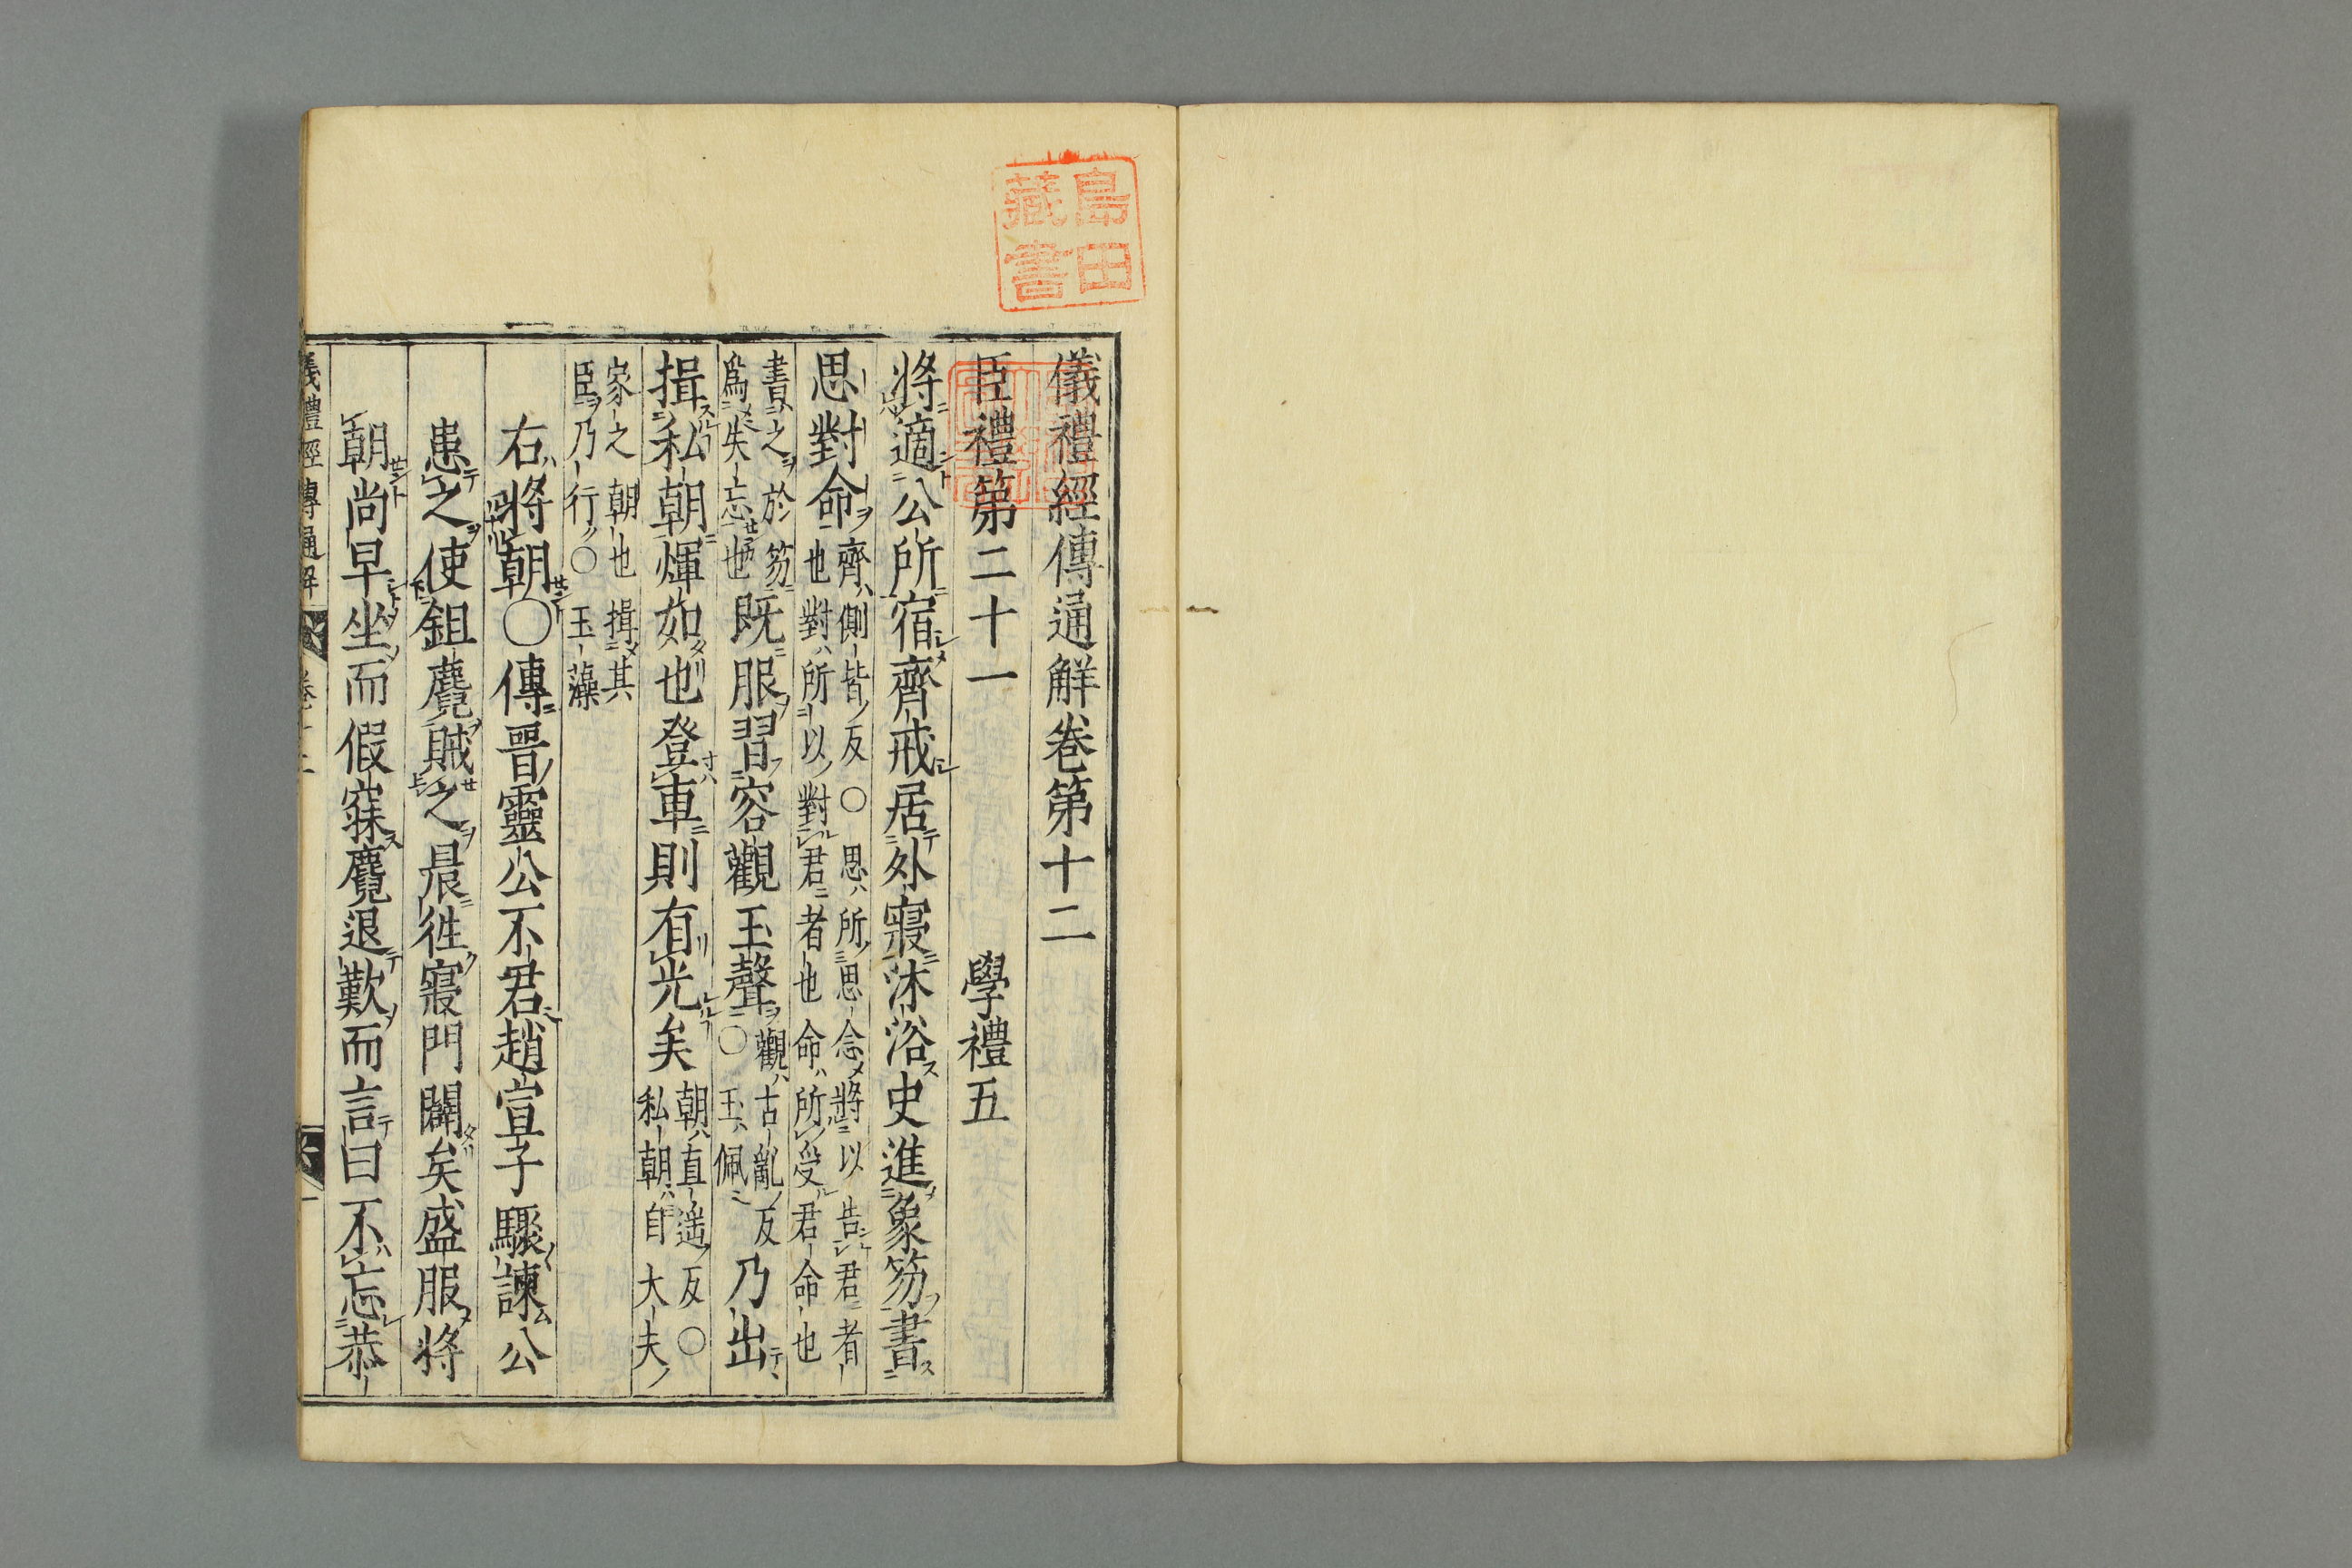 島田
藏書
儀禮經傳通解卷第十二
臣禮第二十一 學禮五
將適公所宿齊戒居外寢沐浴史進象笏書
思對命
齊側皆反○思所思念將以告君者
也對所以對君者也命所受君命也
書之於笏
爲失忘也
既服習容觀玉聲
觀古亂反
○玉佩
乃出
揖私朝煇如也登車則有光矣
朝直遥反○
私朝自大夫
家之朝也揖其
臣乃行○玉藻
右將朝○傳晉靈公不君趙宣子驟諫公
患之使鉏麑賊之晨徃寢門闢矣盛服將
朝尚早坐而假寐麑退歎而言曰不忘恭
儀禮經傳通解 卷十二 一